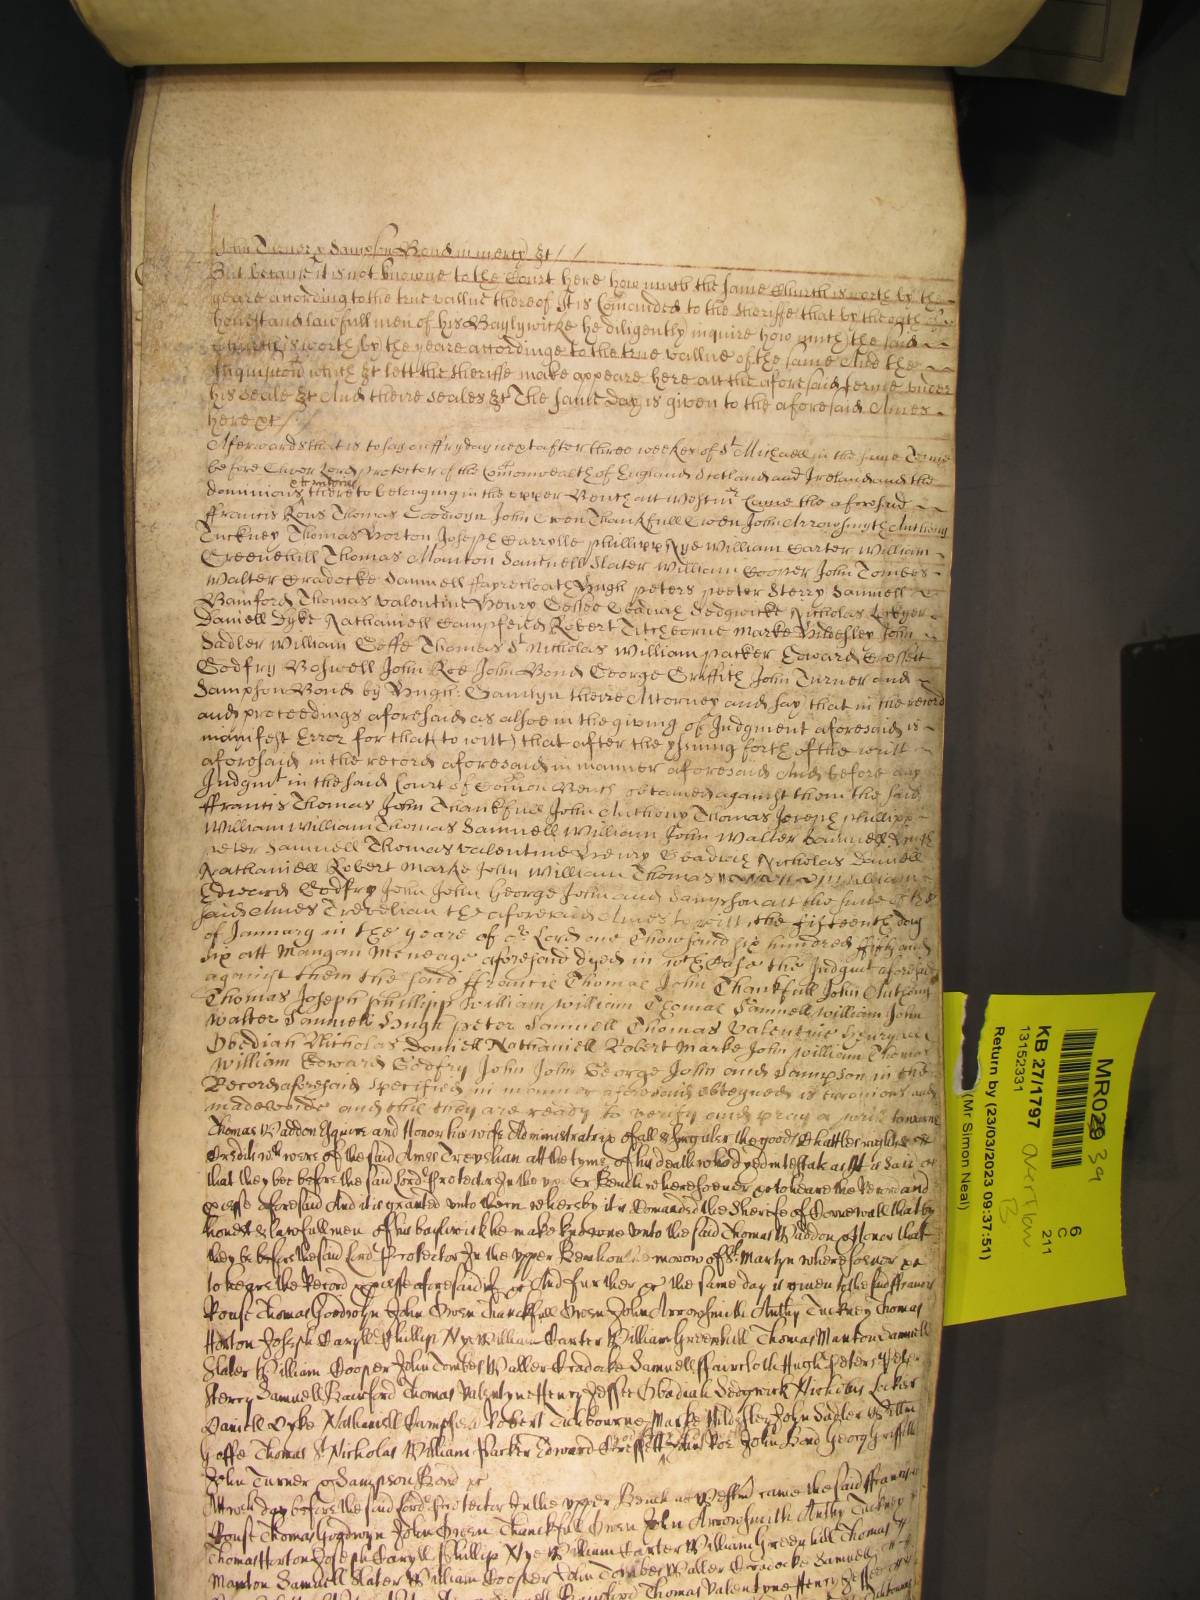 John Turner & Sampson Bond in mercy &c / /
But because it is not knowne to the Court here how much the same Church is worth by the
yeare according to the true vallue thereof It is Comanded to the Sheriffe that by the oath
honest and lawfull men of his Baylywicke he diligently inquire how much the said
Church is worth by the yeare accordinge to the true vallue of the same And the
Inquisicon which &c lett the Sheriffe make appeare here att the aforesaid terme under
his seale &c And theire seales &c The same Day is given to the aforesaid Ames
here &c /
Afterwards that is to say on ffryday next after three weekes of St Michaell in the same Terme
before Oliver Lord protector of the Comonwealth of England Scotland and Ireland and the
dominions & territories thereto belonging in the upper Bench att Westmr came the aforesaid
ffrancis Rous Thomas Goodwyn John Owen Thankfull Owen John Arrowsmyth Anthony
Tuckney Thomas Horton Joseph Carrylle Phillipp Nye William Carter William
Greenehill Thomas Manton Samuell Slater William Cooper John Tombes
Walter Cradocke Samuell ffayrecloath Hugh Peters Peeter Sterry Samuell
Bamford Thomas Valentine Henry Jessee Obadiah Sedgwicke Nicholas Lockyer
Daniell Dyke Nathaniell Campfeild Robert Titchborne Marke Hildesley John
Sadler William Goffe Thomas St Nicholas William Packer Edward Cressett
Godfry Boswell John Roe John Bond George Griffith John Turner and
Sampson Bond by Hugh theire Attorney and say that in the record
and proceedings aforesaid as alsoe in the giving of Judgment aforesaid is
manifest Error for that (to witt) that after the yssuing forth of the writt
aforesaid in the record aforesaid in manner aforesaid And before any
Judgmt in the said Court of Comon Bench obtained against them the said
ffrancis Thomas John Thankfull John Anthony Thomas Joseph Phillipp
William William Thomas Samuell William John Walter Samuell Hugh
Peter Samuell Thomas Valentine Henry Obadiah Nicholas Daniell
Nathaniell Robert Marke John William Thomas William
Edward Godfry John John George John and Sampson att the suite of the
said Ames Trevelian the aforesaid Ames to witt the fifteenth day
of January in the yeare of or Lord one Thowsand six hundred fifty and
six att Maugan Meneage aforesaid dyed in wch Case the Judgmt aforesaid
against them the said ffrancis Thomas John Thankfull John Anthony
Thomas Joseph Phillipp William William Thomas Samuell William John
Walter Samuell Hugh Peter Samuell Thomas Valentine Henry
Obediah Nicholas Daniell Nathaniell Robert Marke John William Thomas
William Edward Godfry John John George John and Sampson in the
Record aforesaid specified in manner aforesaid obteyned is erronious and
made voide and this they are ready to verify and pray a writt to warne
Thomas Waddon Esquire and Honor his wife Administratrix of all & singuler the goods Chattles rights &
Creditts wch were of the said Ames Trevelian att the tyme of his death who dyed intestate as it is said &c
that they bee before the said Lord Protector In the upper Bench wheresoever &c to heare the Record and
processe aforesaid And it is granted unto them whereby it is Comanded the Sherife of Cornewall that by
honest & lawfull men of his bayliwick he make knowne unto the said Thomas Waddon & Honor that
they be before the said Lord Protector In the upper Bench on the morow of St Martyn wheresoever &c
to heare the Record & processe aforesaid if &c And further &c the same day is given to the said ffrancis
Rouse Thomas Goodwyn John Owen Thanckfull Owen John Arrowsmith Anthy Tuckney Thomas
Horton Joseph Caryll Phillip Nye William Carter William Greenhill Thomas Manton Samuell
Slater William Cooper John Tombes Walter Cradocke Samuell ffaircloth Hugh Peters Peter
Sterry Samuell Bamford Thomas Valentyne Henry Jessee Obadiah Sedgwick Nicholas Lockier
Daniell Dyke Nathaniell Campfeild Robert Tichbourne Marke Hildesley John Sadler Willm
Goffe Thomas St Nicholas William Packer Edward Cressett John Roe John Bond George Griffith
John Turner & Sampson Bond &c
Att wch day before the said Lord Protector In the upper Bench at Westmr came the said ffrancis
Rouse Thomas Goodwyn John Owen Thanckfull Owen John Arrowsmith Anthy Tuckney
Thomas Horton Joseph Caryll Phillip Nye William Carter William Greenhill Thomas
Manton Samuell Slater William Cooper John Tombes Walter Cradocke Samuell
Bamford Thomas Valentyne Henry Jessee
MR029 39
6
C
211
KB 27/1797 overflow
B
13152331
Return by (23/03/2023 09:37:51)
(Mr Simon Neal)